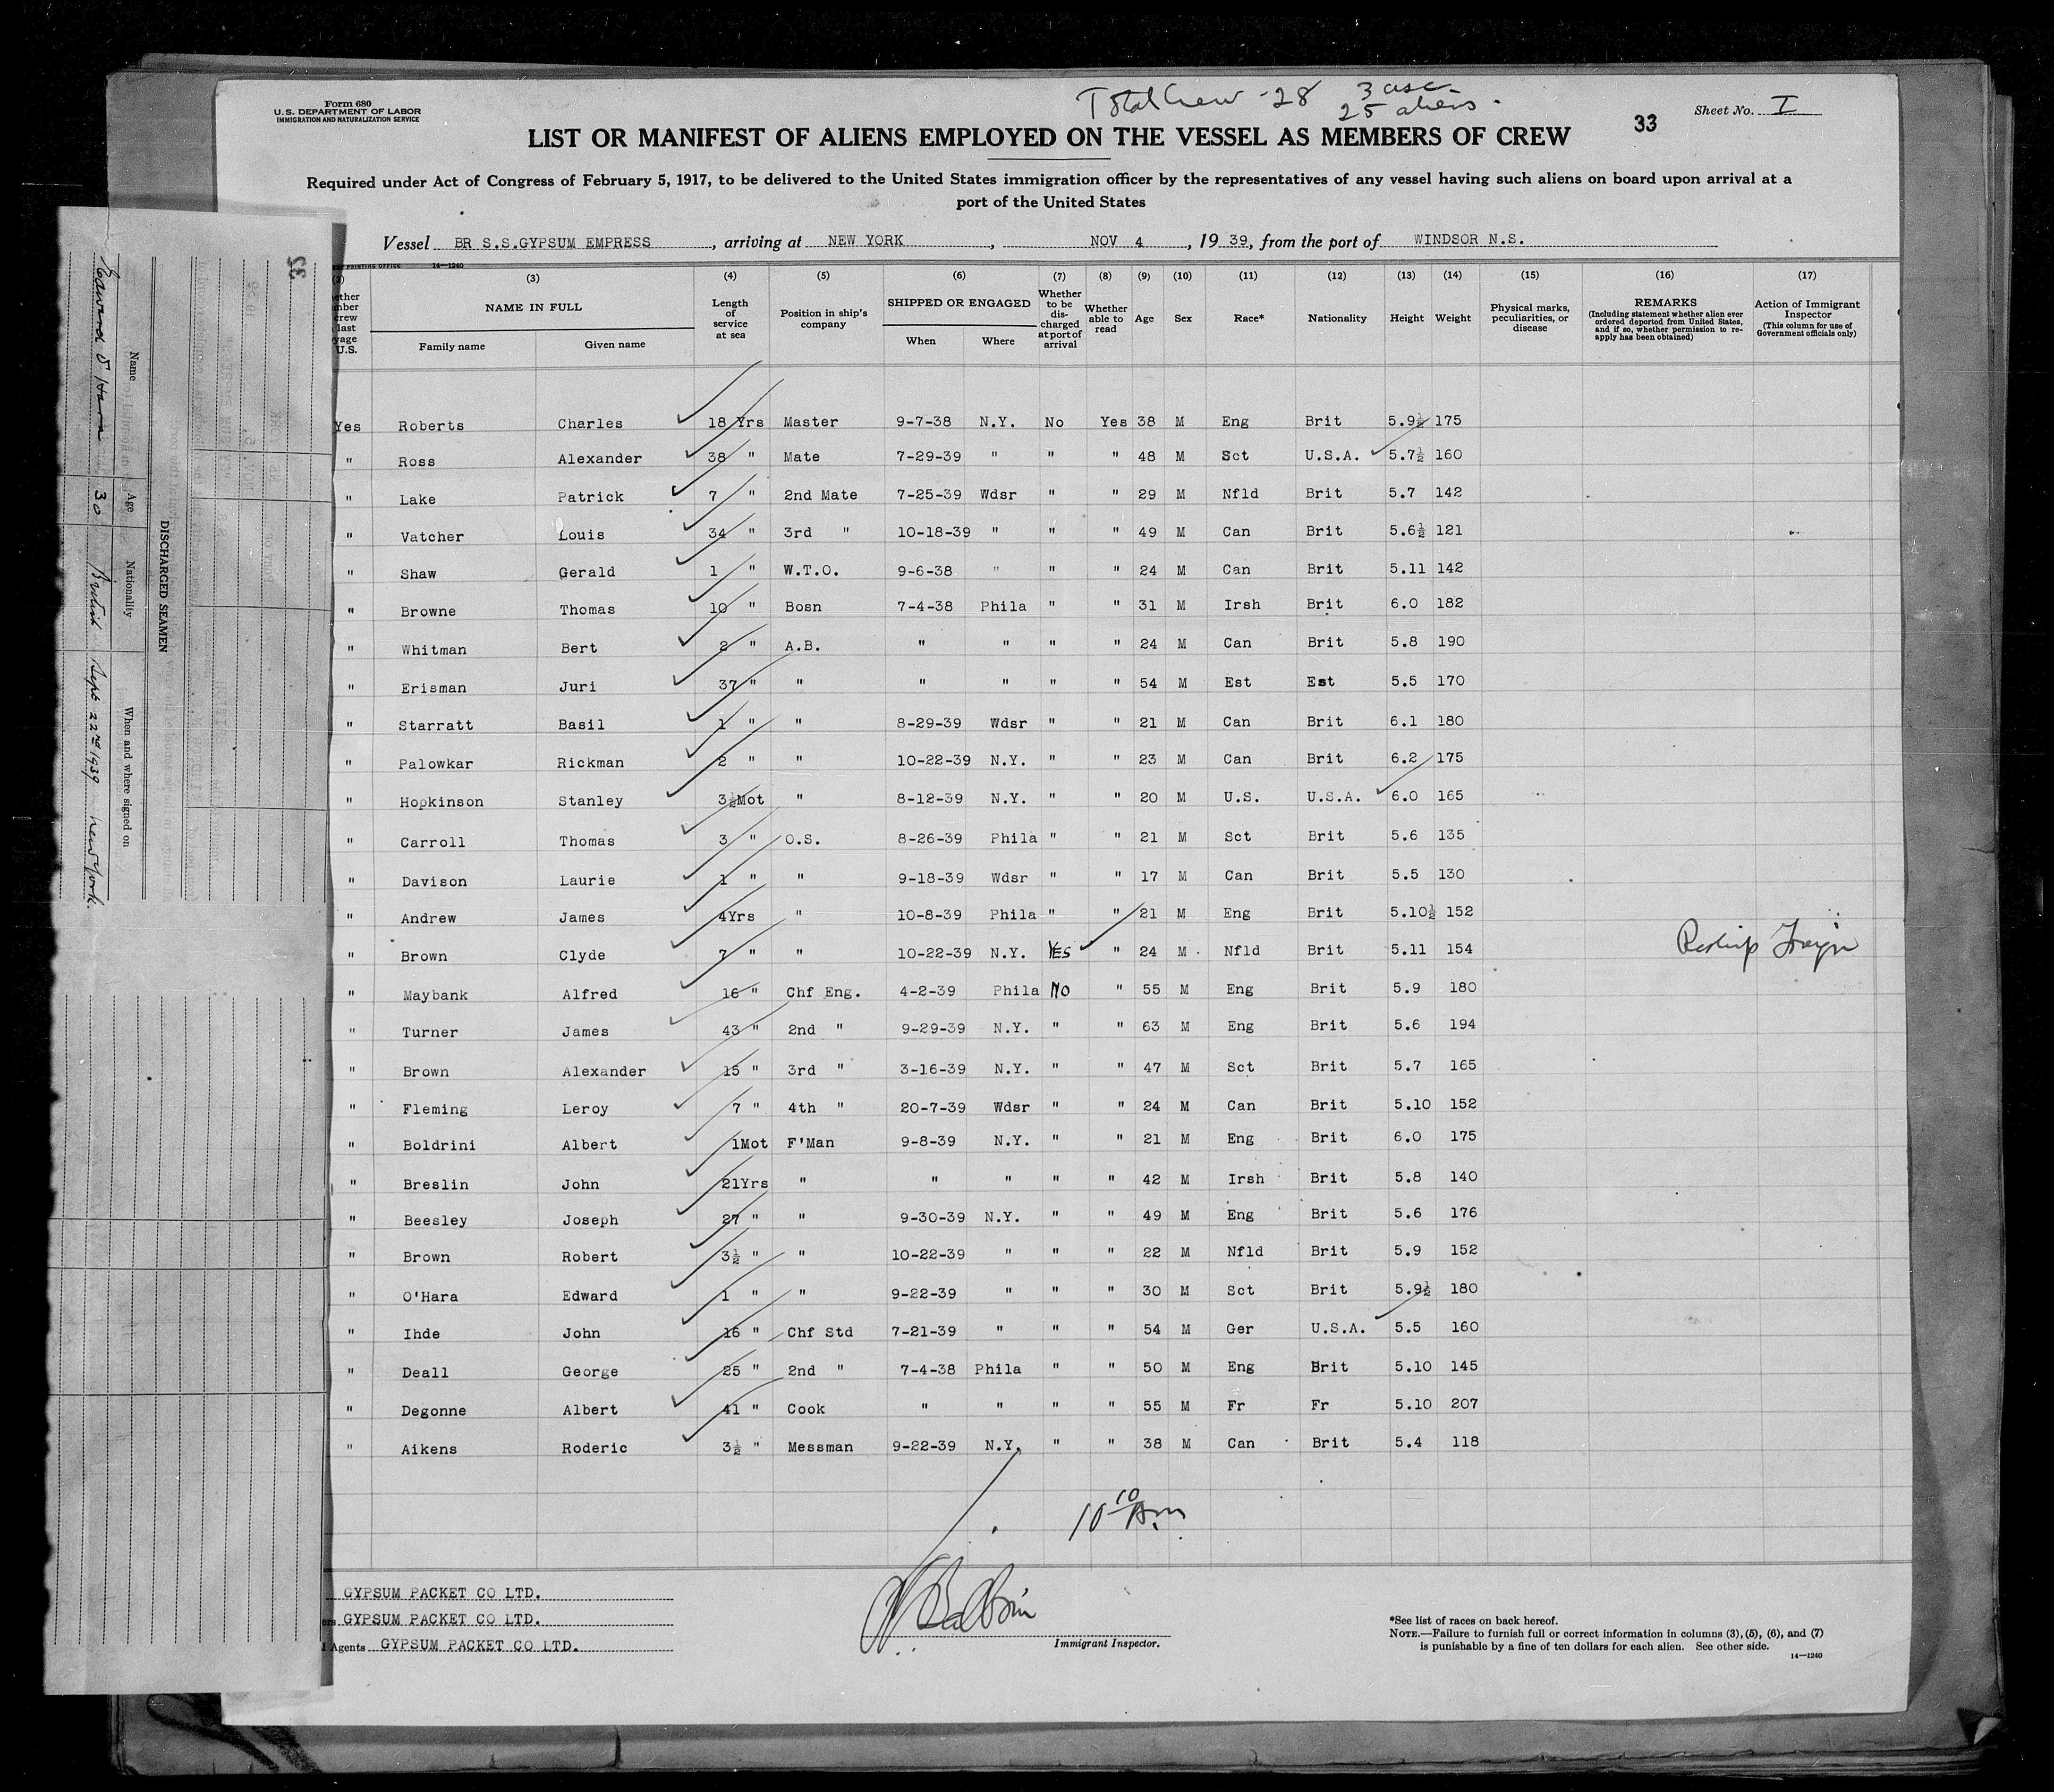 Form 680
U.S. DEPARTMENT OF LABOR
IMMIGRATION AND NATURALIZATION SERVICE
Total Crew - 28 3 usc
25 aliens.
33
Sheet No. I
LIST OR MANIFEST OF ALIENS EMPLOYED ON THE VESSEL AS MEMBERS OF CREW
Required under Act of Congress of February 5, 1917, to be delivered to the United States immigration officer by the representatives of any vessel having such aliens on board upon arrival at a
port of the United States
Vessel BR S.S.GYPSUM EMPRESS, arriving at NEW YORK, NOV 4, 19 39, from the port of WINDSOR N.S.
14—1240
(3) (4) (5) (6) (7) (8) (9) (10) (11) (12) (13) (14) (15) (16) (17)
NAME IN FULL
Family name Given name
Length of service at sea
Position in ship's company
SHIPPED OR ENGAGED
When Where
Whether to be discharged at port of arrival
Whether able to read
Age
Sex
Race*
Nationality
Height
Weight
Physical marks, peculiarities, or disease
REMARKS
(Including statement whether alien ever ordered deported from United States, and if so, whether permission to reapply has been obtained)
Action of Immigrant Inspector
(This column for use of Government officials only)
Yes Roberts Charles 18 Yrs Master 9-7-38 N.Y. No Yes 38 M Eng Brit 5.9½ 175
" Ross Alexander 38 " Mate 7-29-39 " " " 48 M Sct U.S.A. 5.7½ 160
" Lake Patrick 7 " 2nd Mate 7-25-39 Wdsr " " 29 M Nfld Brit 5.7 142
" Vatcher Louis 34 " 3rd " 10-18-39 " " " 49 M Can Brit 5.6½ 121
" Shaw Gerald 1 " W.T.O. 9-6-38 " " " 24 M Can Brit 5.11 142
" Browne Thomas 10 " Bosn 7-4-38 Phila " " 31 M Irsh Brit 6.0 182
" Whitman Bert 2 " A.B. " " " " 24 M Can Brit 5.8 190
" Erisman Juri 37 " " " " " " 54 M Est Est 5.5 170
" Starratt Basil 1 " " 8-29-39 Wdsr " " 21 M Can Brit 6.1 180
" Palowkar Rickman 2 " " 10-22-39 N.Y. " " 23 M Can Brit 6.2 175
" Hopkinson Stanley 3½Mot " 8-12-39 N.Y. " " 20 M U.S. U.S.A. 6.0 165
" Carroll Thomas 3 " O.S. 8-26-39 Phila " " 21 M Sct Brit 5.6 135
" Davison Laurie 1 " " 9-18-39 Wdsr " " 17 M Can Brit 5.5 130
" Andrew James 4Yrs " 10-8-39 Phila " " 21 M Eng Brit 5.10½ 152
" Brown Clyde 7 " " 10-22-39 N.Y. YES " 24 M Nfld Brit 5.11 154
" Maybank Alfred 16 " Chf Eng. 4-2-39 Phila NO " 55 M Eng Brit 5.9 180
" Turner James 43 " 2nd " 9-29-39 N.Y. " " 63 M Eng Brit 5.6 194
" Brown Alexander 15 " 3rd " 3-16-39 N.Y. " " 47 M Sct Brit 5.7 165
" Fleming Leroy 7 " 4th " 20-7-39 Wdsr " " 24 M Can Brit 5.10 152
" Boldrini Albert 1Mot F'Man 9-8-39 N.Y. " " 21 M Eng Brit 6.0 175
" Breslin John 21Yrs " " " " " 42 M Irsh Brit 5.8 140
" Beesley Joseph 27 " " 9-30-39 N.Y. " " 49 M Eng Brit 5.6 176
" Brown Robert 3½ " " 10-22-39 " " " 22 M Nfld Brit 5.9 152
" O'Hara Edward 1 " " 9-22-39 " " " 30 M Sct Brit 5.9½ 180
" Ihde John 16 " Chf Std 7-21-39 " " " 54 M Ger U.S.A. 5.5 160
" Deall George 25 " 2nd " 7-4-38 Phila " " 50 M Eng Brit 5.10 145
" Degonne Albert 41 " Cook " " " " 55 M Fr Fr 5.10 207
" Aikens Roderic 3½ " Messman 9-22-39 N.Y. " " 38 M Can Brit 5.4 118
10 10 Am
GYPSUM PACKET CO LTD.
GYPSUM PACKET CO LTD.
Agents GYPSUM PACKET CO LTD.
Immigrant Inspector.
*See list of races on back hereof.
NOTE.—Failure to furnish full or correct information in columns (3), (5), (6), and (7)
is punishable by a fine of ten dollars for each alien. See other side.
14—1240
35
DISCHARGED SEAMEN
Name Age Nationality When and where signed on
Edward O'Hara 30 British Sept 22nd 1939 New York